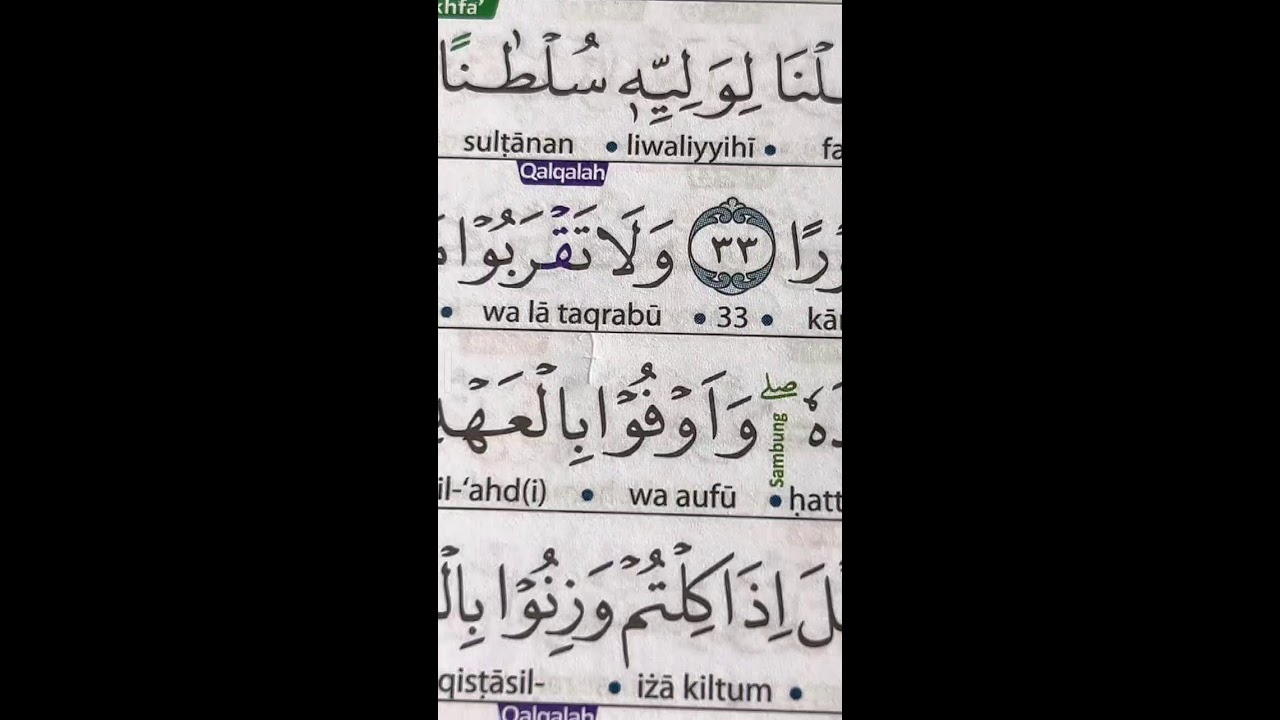 khfa’
لْنَا لِوَلِيِّهٖ سُلْطٰنًا
sulṭānan • liwaliyyihī • fa
Qalqalah
وْرًا ٣٣ وَلَا تَقْرَبُوْا
• wa lā taqrabū • 33 • kā
دَّهٗ ۖ وَاَوْفُوْا بِالْعَهْدِ
Sambung
il-‘ahd(i) • wa aufū • ḥatt
لَ اِذَا كِلْتُمْ وَزِنُوْا بِالْ
qisṭāsil- • iżā kiltum •
Qalqalah